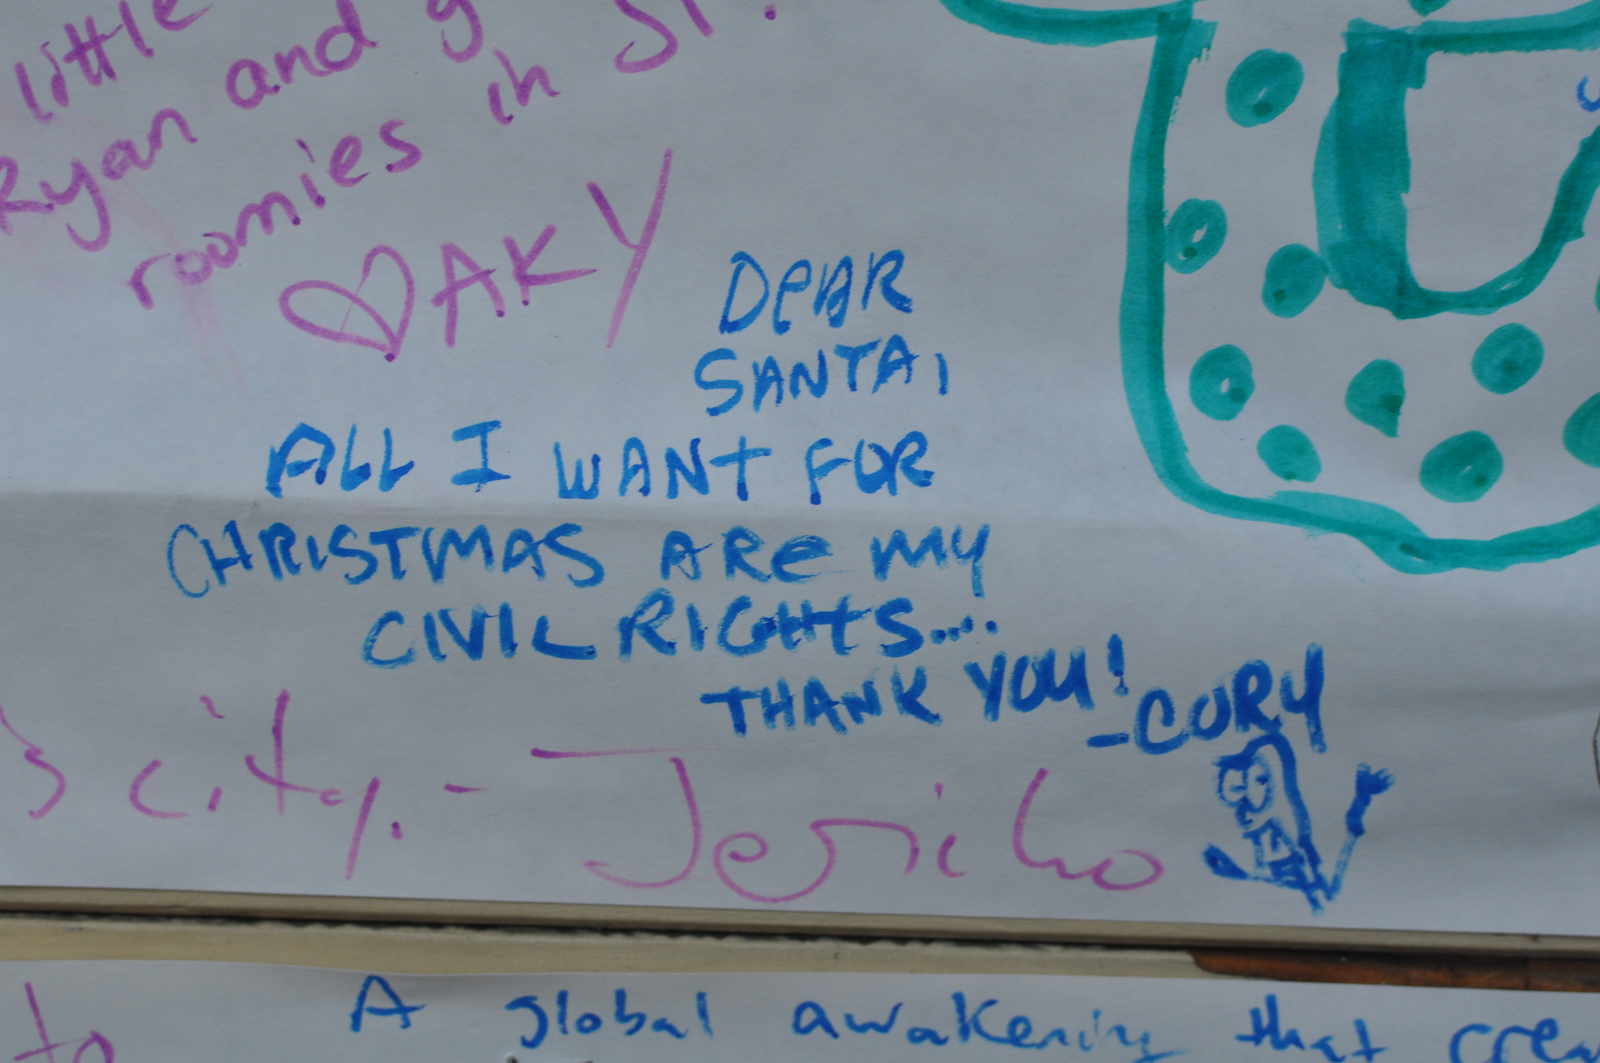 little
Ryan and
roomies in
AKY
DeAR
SANTA,
ALL I WANT FOR
CHRISTMAS ARe MY
CIVIL RIGHTS....
THANK YOU!
-CORY
city. - Jericho
to
A global awakening that